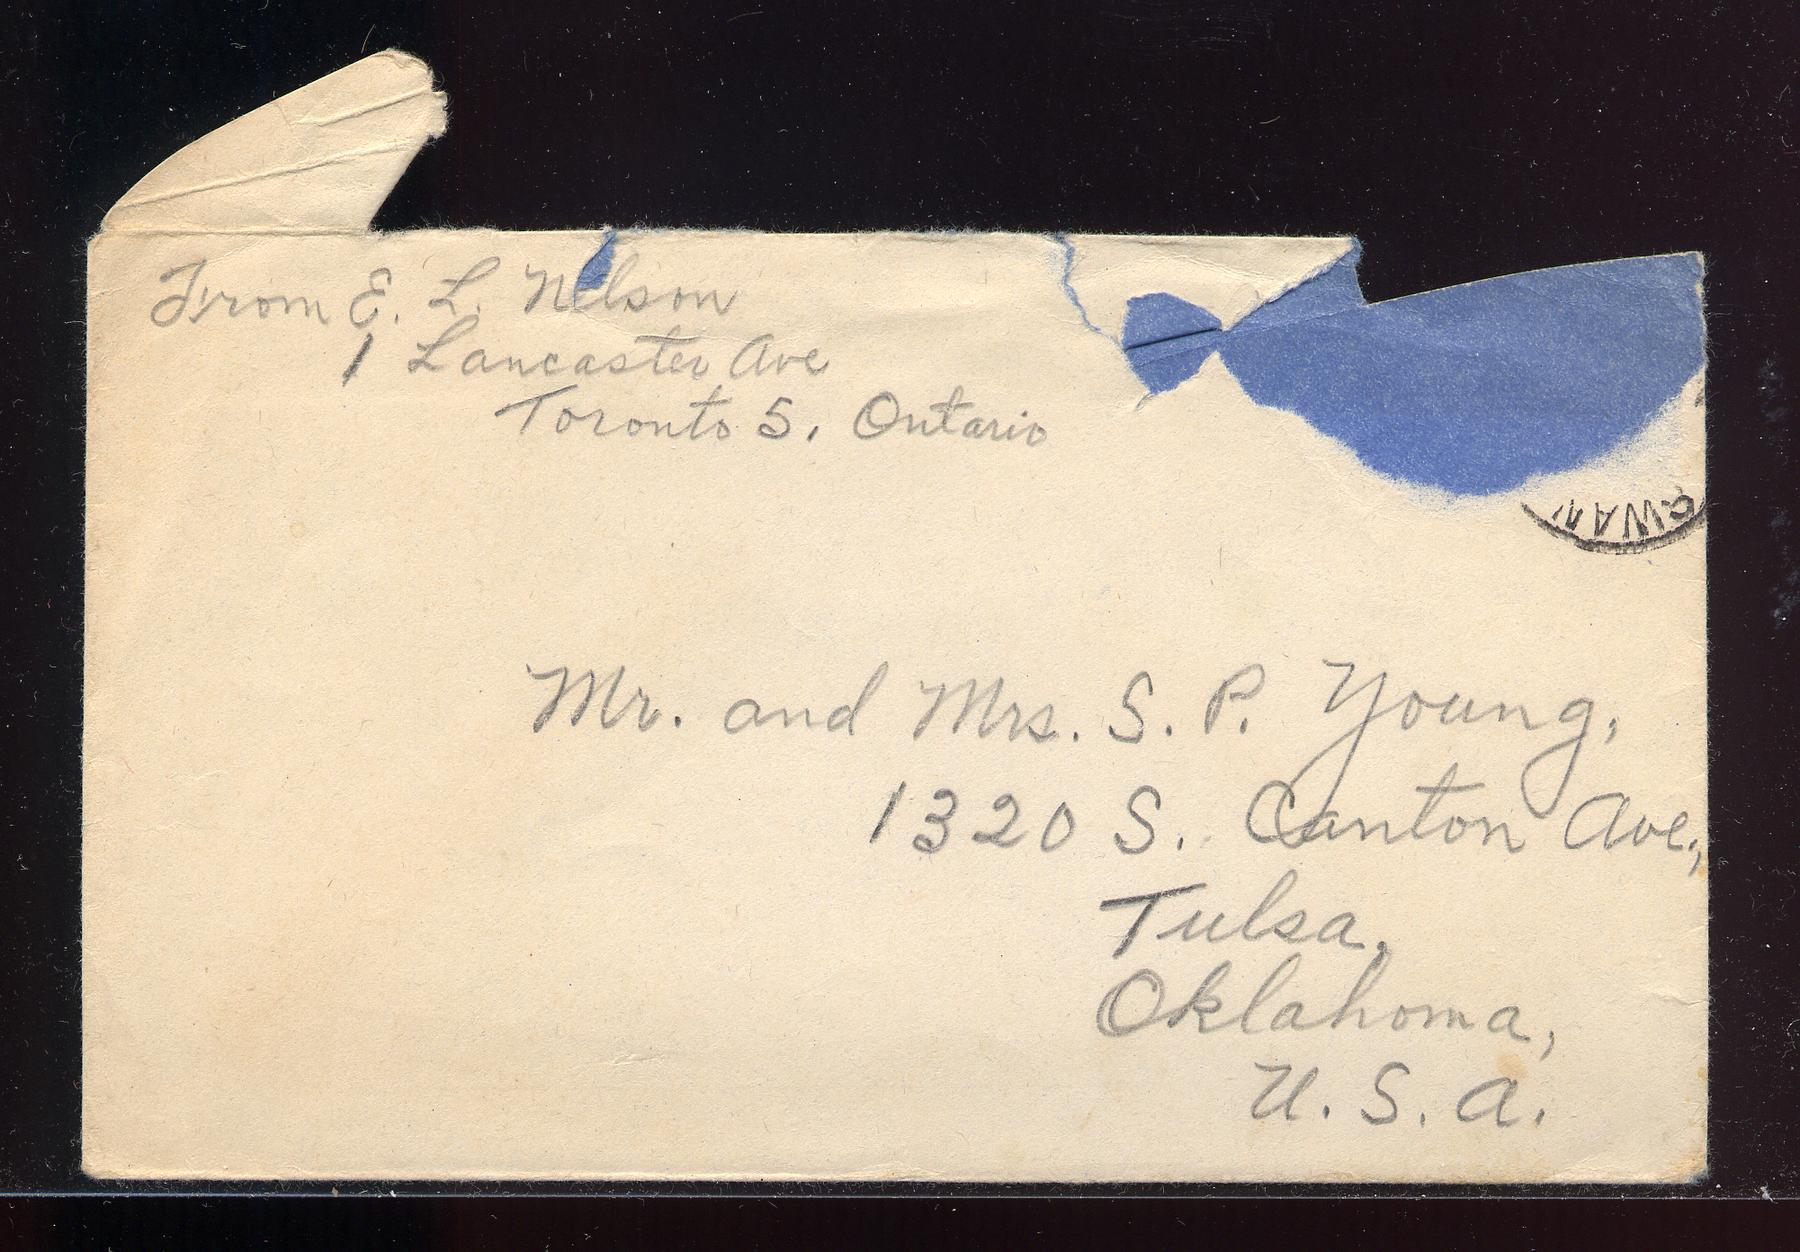 From E. L. Nelson
1 Lancaster Ave
Toronto 5, Ontario
Mr. and Mrs. S. P. Young,
1320 S. Canton Ave.,
Tulsa,
Oklahoma,
U. S. A.